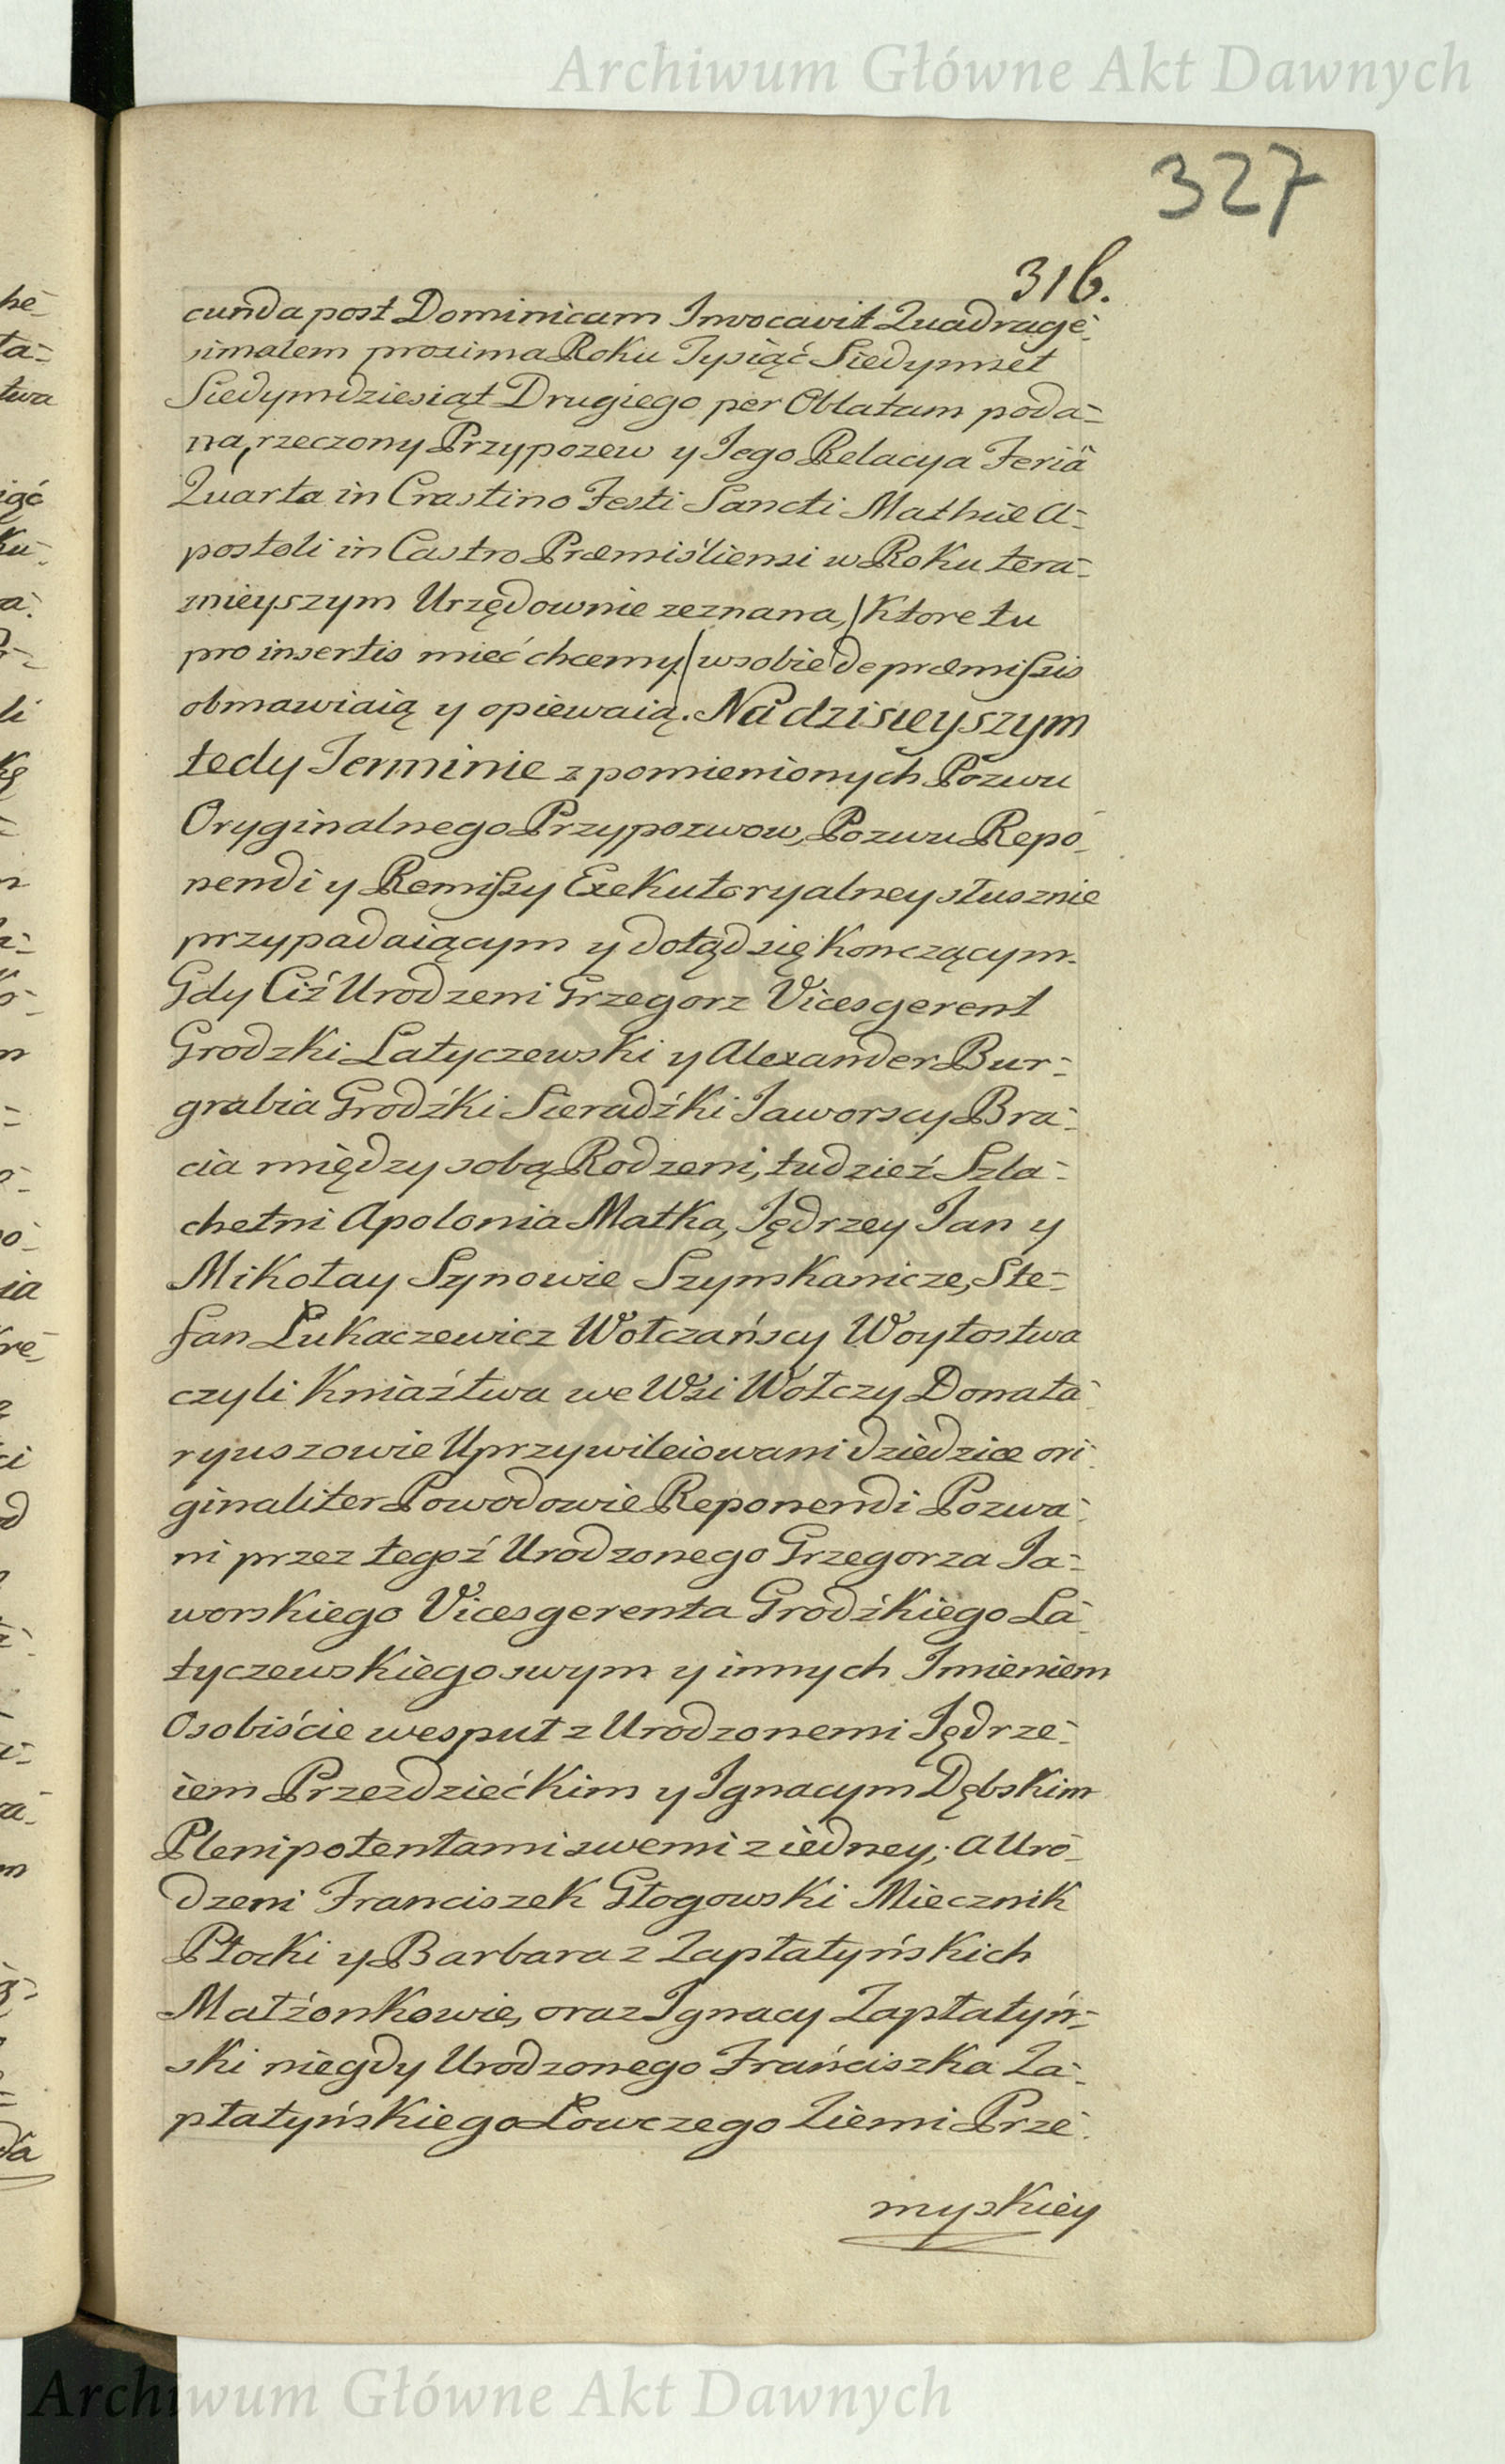 Archiwum Główne Akt Dawnych
327
316.
cunda post Dominicam Invocavit Quadrage-
simalem proxima Roku Tysiąć Siedymset
Siedymdziesiąt Drugiego per Oblatam poda-
na, rzeczony Przypozew y Jego Relacya Feriä
Quarta in Crastino Festi Sancti Mathiæ A-
postoli in Castro Præmisliensi w Roku tera-
znieyszym Urzędownie zeznana, /Ktore tu
pro insertis mieć chcemy/ w sobie de præmissis
obmawiaią y opiewaią. Na dzisieyszym
tedy Terminie z pomienionych Pozwu
Oryginalnego Przypozwow, Pozwu Repo-
nendi y Remissy Exekutoryalney słusznie
przypadaiącym y dotąd się Konczącym.
Gdy Ciź Urodzeni Grzegorz Vicesgerent
Grodzki Latyczewski y Alexander Bur-
grabia Grodźki Sieradźki Jaworscy Bra-
cia między sobą Rodzeni, tudzieź Szla-
chetni Apolonia Matka, Jędrzey Jan y
Mikołay Synowie Szymkanicze, Ste-
fan Łukaczewicz Wołczańscy Woytostwa
czyli Kniaźtwa we Wsi Wołczy Donata-
ryuszowie Uprzywileiowani dziedzice ori-
ginaliter Powodowie Reponendi Pozwa-
ni przez tegoź Urodzonego Grzegorza Ja-
worskiego Vicesgerenta Grodźkiego La-
tyczewskiego swym y innych Imieniem
Osobiście wespuł z Urodzonemi Jędrze-
iem Przezdziećkim y Ignacym Dębskim
Plenipotentami swemi z iedney; a Uro-
dzeni Franciszek Głogowski Miecznik
Płocki y Barbara z Zapłatyńskich
Małźonkowie, oraz Ignacy Zapłatyń-
ski niegdy Urodzonego Frańciszka Za-
płatyńskiego Łowczego Ziemi Prze-
myskiey
Archiwum Główne Akt Dawnych